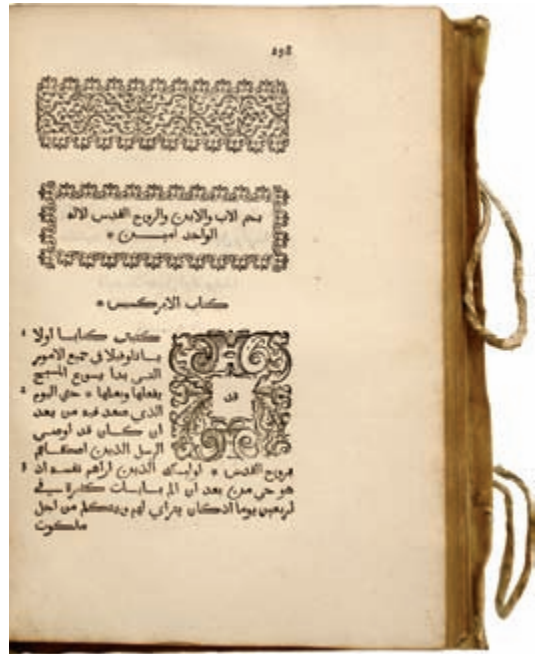 298
بسم الاب والابن والروح القدس الاله
الواحد اميـــن *
كتاب الابركسيس *
قد
كتبت كتابا اولا 1
يا تاوفيلا في جميع الامور
التي بدا يسوع المسيح
يفعلها ويعلمها * حتى اليوم 2
الذي صعد فيه من بعد
ان كان قد اوصى
الرسل الذين اصطفاهم
بروح القدس * اوليك الذين اراهم نفسه ان 3
هو حي من بعد ان الم بايات كثيرة في
اربعين يوما اذ كان يتراي لهم ويتكلم من اجل
ملكوت